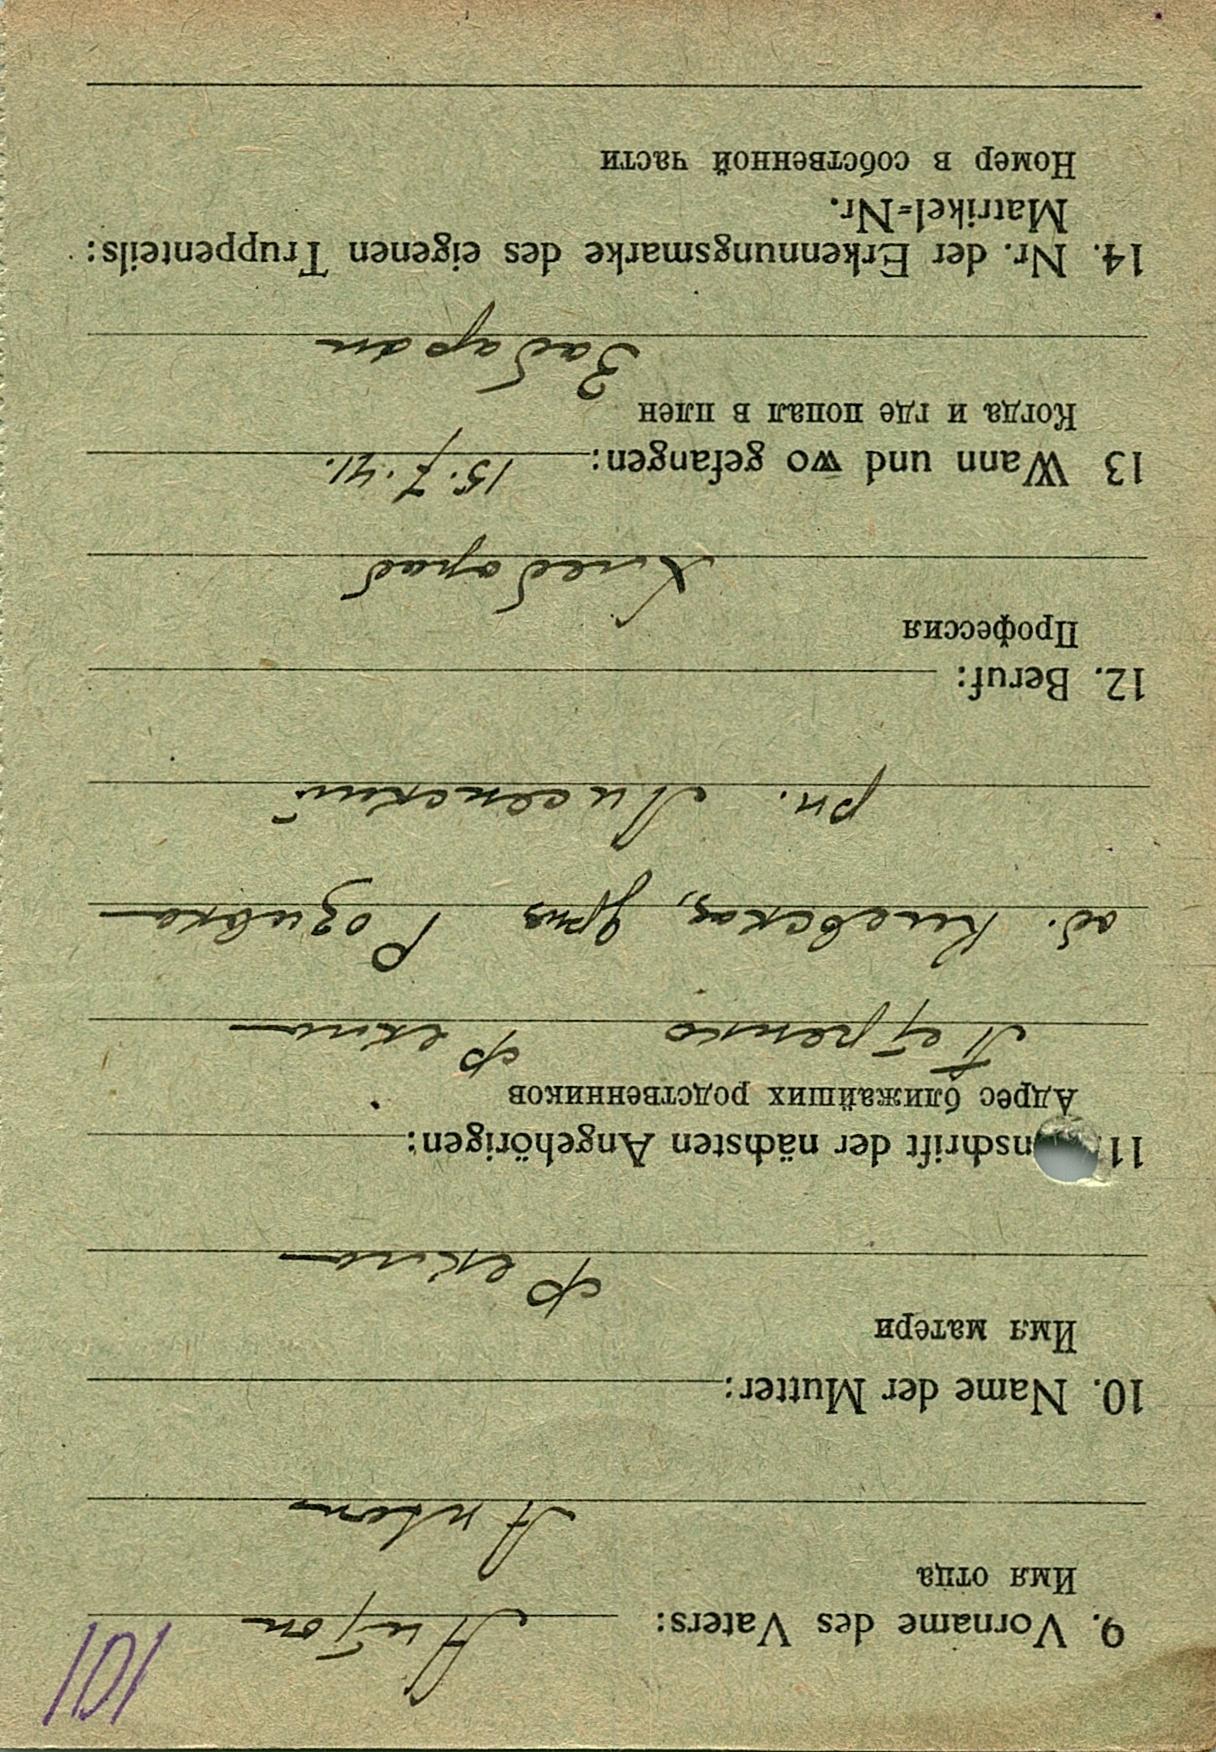 101
9. Vorname des Vaters: Антон
Имя отца
Антон
10. Name der Mutter:
Имя матери
Фекла
11. nschrift der nächsten Angehörigen:
Адрес ближайших родственников
Петренко Фекла
об. Киевская, дрна Розивка
рн. Лисенский
12. Beruf:
Профессия
Хлебораб
13 Wann und wo gefangen: 15.7.41.
Когда и где попал в плен
14. Nr. der Erkennungsmarke des eigenen Truppenteils:
Matrikel=Nr.
Номер в собственной части